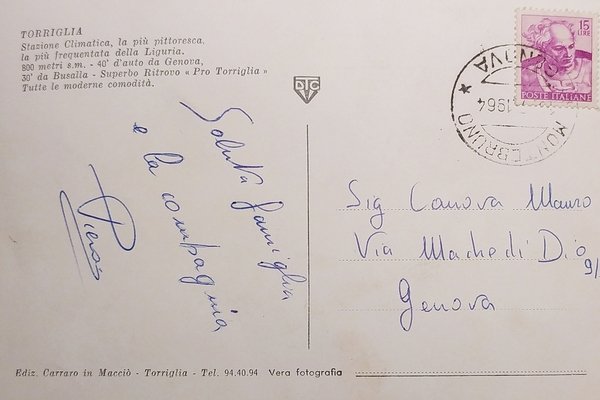 TORRIGLIA
Stazione Climatica, la più pittoresca,
la più frequentata della Liguria.
800 metri s.m. - 40' d'auto da Genova,
30' da Busalla - Superbo Ritrovo « Pro Torriglia »
Tutte le moderne comodità.
Saluta famiglia
e la compagnia
Piero
DTC
15
LIRE
POSTE ITALIANE
MONTEBRUNO
GENOVA
1964
Sig Canova Mauro
Via Madre di Dio
9/
Genova
Ediz. Carraro in Macciò - Torriglia - Tel. 94.40.94 Vera fotografia